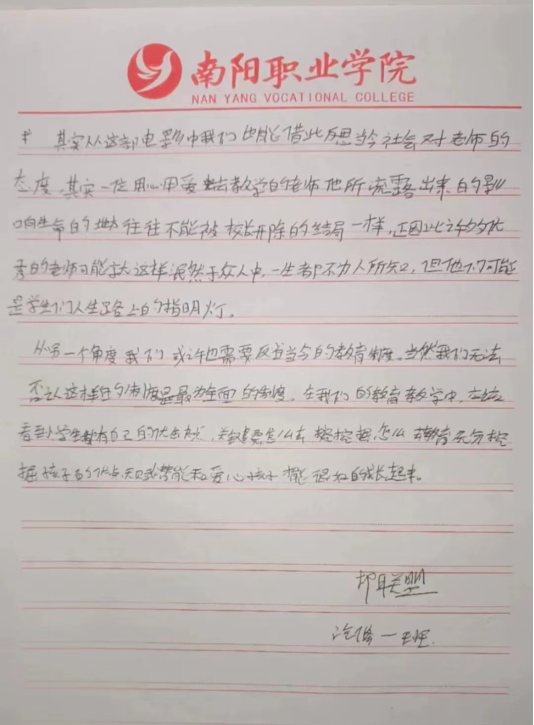 南阳职业学院
NAN YANG VOCATIONAL COLLEGE
其实从这部电影中我们也能借此反思当今社会对老师的
态度,其实一位用心用爱去教学的老师他所流露出来的影
响生命的 往往不能被 开除的结局一样,正因此许多优
秀的老师可能就这样泯然于众人中,一生都不为人所知,但他们可能
是学生们人生路上的指明灯。
从另一个角度我们或许也需要反思当今的教育制度。当然我们无法
否认这样的制度是最为全面的制度,在我们的教育教学中,应该
看到学生都有自己的优点 怎么 充分挖
掘孩子的优点 和爱心孩子才能很好的成长起来。
联盟
汽修一班.